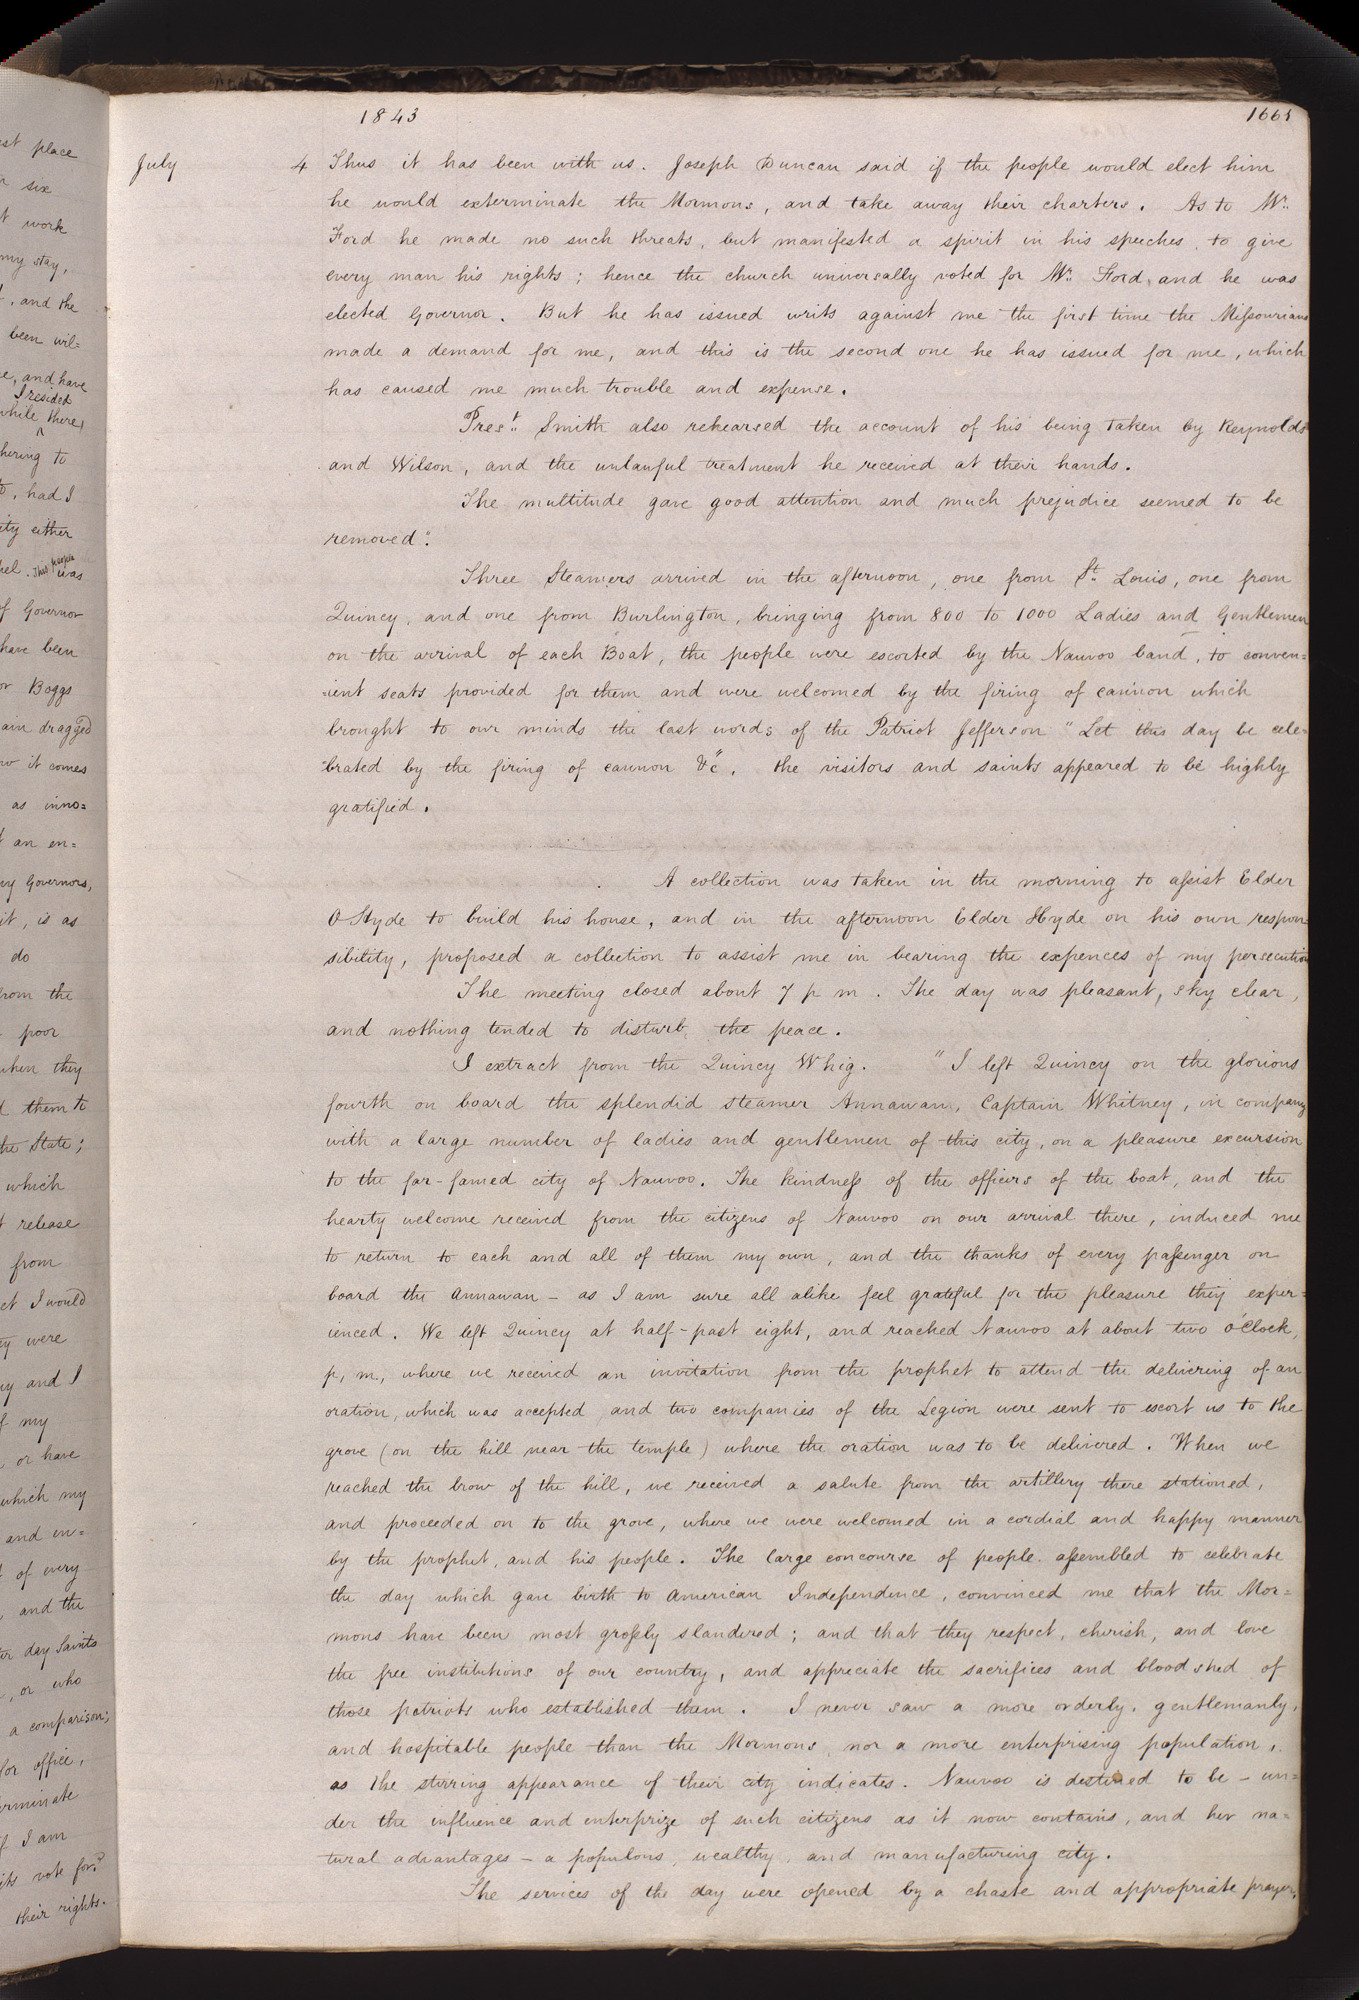 st place
six
t work
my stay,
, and the
been wil=
e, and have
I resided
while there,
hering to
, had I
ity either
el. This people was
of Governor
have been
or Boggs
ain dragged
w it comes
as inno=
t an en=
ny Governors,
it, is as
do
from the
poor
when they
d them to
the State;
which
t release
from
ct I would
y were
y and I
f my
, or have
which my
and en=
of every
, and the
er day Saints
, or who
a comparison;
for office,
erminate
f I am
its vote for?
their rights.
1843 1665
July 4 Thus it has been with us. Joseph Duncan said if the people would elect him
he would exterminate the Mormons, and take away their charters. As to Mr.
Ford he made no such threats, but manifested a spirit in his speeches, to give
every man his rights; hence the church universally voted for Mr. Ford, and he was
elected Governor. But he has issued writs against me the first time the Missourians
made a demand for me, and this is the second one he has issued for me, which
has caused me much trouble and expense.
Prest. Smith also rehearsed the account of his being taken by Reynolds
and Wilson, and the unlawful treatment he received at their hands.
The multitude gave good attention and much prejudice seemed to be
removed".
Three Steamers arrived in the afternoon, one from St. Louis, one from
Quincy, and one from Burlington, bringing from 800 to 1000 Ladies and Gentlemen
on the arrival of each Boat, the people were escorted by the Nauvoo band, to conven=
=ient seats provided for them and were welcomed by the firing of cannon which
brought to our minds the last words of the Patriot Jefferson "Let this day be cele=
=brated by the firing of cannon &c". the visitors and saints appeared to be highly
gratified.
A collection was taken in the morning to assist Elder
O Hyde to build his house, and in the afternoon Elder Hyde on his own respon=
sibility, proposed a collection to assist me in bearing the expences of my persecution
The meeting closed about 7 p m. The day was pleasant, sky clear,
and nothing tended to disturb the peace.
I extract from the Quincy Whig. "I left Quincy on the glorious
fourth on board the splendid steamer Annawan, Captain Whitney, in company
with a large number of ladies and gentlemen of this city, on a pleasure excursion
to the far-famed city of Nauvoo. The kindness of the officers of the boat, and the
hearty welcome received from the citizens of Nauvoo on our arrival there, induced me
to return to each and all of them my own, and the thanks of every passenger on
board the Annawan – as I am sure all alike feel grateful for the pleasure they exper=
ienced. We left Quincy at half-past eight, and reached Nauvoo at about two o'Clock,
p, m., where we received an invitation from the prophet to attend the delivering of an
oration, which was accepted, and two companies of the Legion were sent to escort us to the
grove (on the hill near the temple) where the oration was to be delivered. When we
reached the brow of the hill, we received a salute from the artillery there stationed,
and proceeded on to the grove, where we were welcomed in a cordial and happy manner
by the prophet, and his people. The large concourse of people assembled to celebrate
the day which gave birth to American Independence, convinced me that the Mor=
mons have been most grossly slandered; and that they respect, cherish, and love
the free institutions of our country, and appreciate the sacrifices and bloodshed of
those patriots who established them. I never saw a more orderly, gentlemanly,
and hospitable people than the Mormons, nor a more enterprising population,
as the stirring appearance of their city indicates. Nauvoo is destined to be – un=
der the influence and enterprize of such citizens as it now contains, and her na=
tural advantages – a populous, wealthy, and manufacturing city.
The services of the day were opened by a chaste and appropriate prayer,